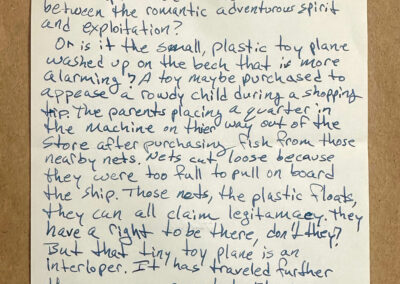 between the romantic adventurous spirit
and exploitation?
Or is it the small, plastic toy plane
washed up on the bech that is more
alarming? A toy maybe purchased to
appease a rowdy child during a shopping
trip. The parents placing a quarter in
the machine on thier way out of the
store after purchasing fish from those
nearby nets. Nets cut loose because
they were too full to pull on board
the ship. Those nets, the plastic floats,
they can all claim legitamacy. They
have a right to be there, don't they?
But that tiny toy plane is an
interloper. It has traveled further